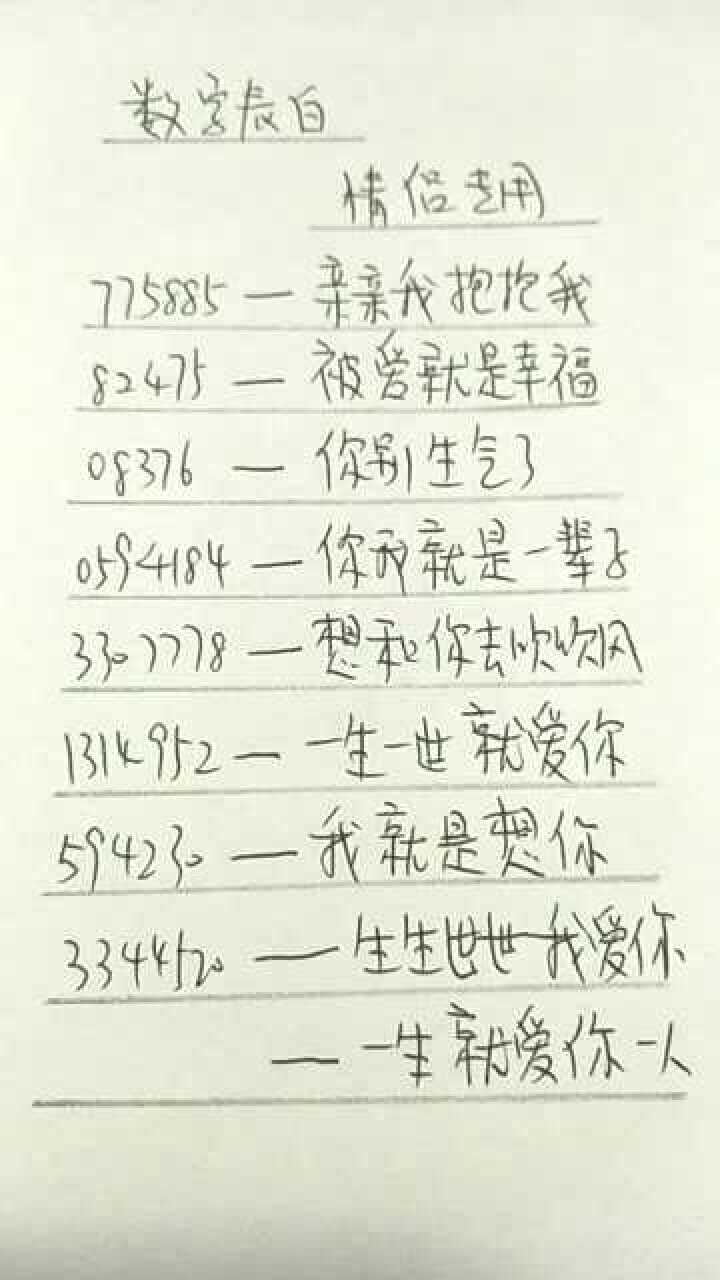 数字表白
情侣专用
775885 — 亲亲我抱抱我
82475 — 被爱就是幸福
08376 — 你别生气了
0594184 — 你我就是一辈子
3307778 — 想和你去吹吹风
1314952 — 一生一世就爱你
594230 — 我就是想你
3344520 — 生生世世我爱你
— 一生就爱你一人